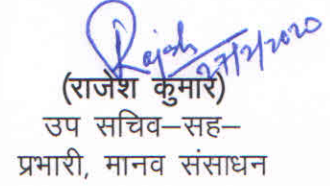 Rajesh
27/2/2020
(राजेश कुमार)
उप सचिव–सह–
प्रभारी, मानव संसाधन